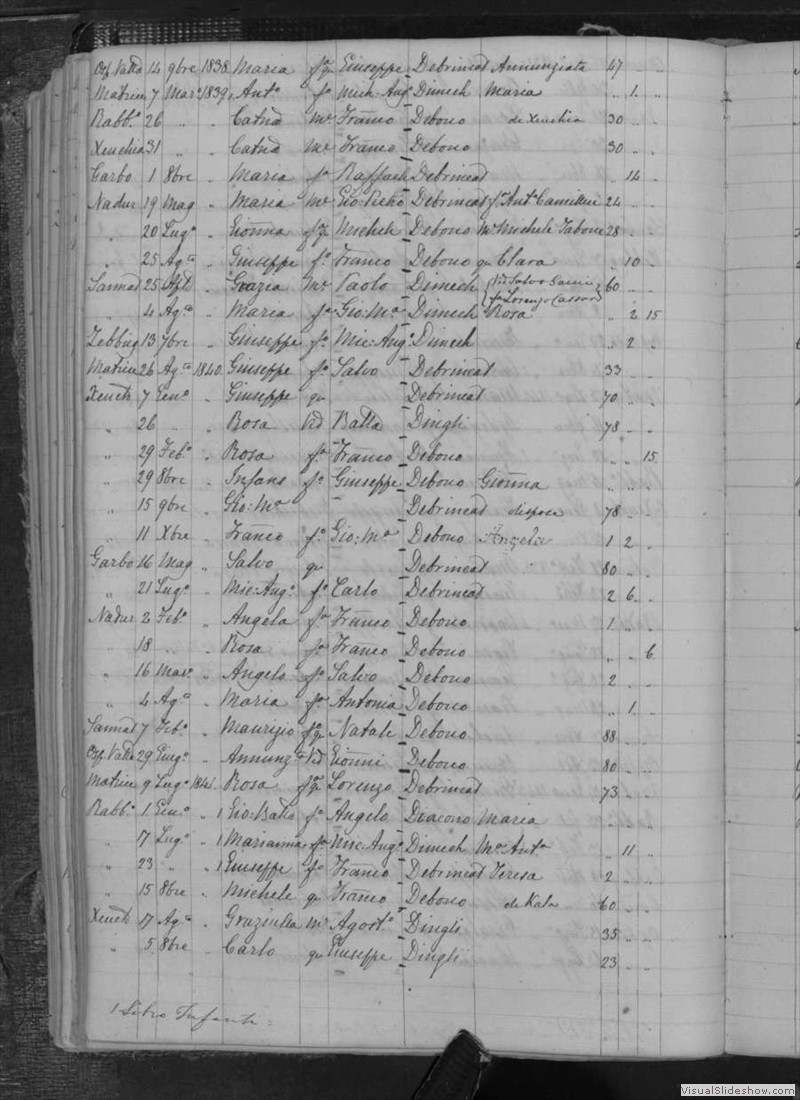 Osp. Valta 14 9bre 1838. Maria fa qu Giuseppe Debrincat Annunziata 47 " "
Matrice 7 Mar. 1839. Anto fo Mich: Ango Dimech Maria " 1. "
Rabb.o 26 " " Catna Me Franco Debono de Xeuchia 30 " "
Xeuchia 31 " " Catna Me Franco Debono 30 " "
Garbo 1 8bre " Maria fa Raffaele Debrincat " 14 "
Nadur 19 Mag " Maria Me Gio: Pietro Debrincat f. Anto Camilleri 24 " "
" 20 Lugo " Gionna fa qu Michele Debono Me Michele Tabone 28 " "
" 25 Ago " Giuseppe fo Franco Debono qu Clara " 10 "
Sannat 25 Aple " Grazia Me Paolo Dimech { Vid Salvo 60 " "
{ fa Lorenzo Cassar
" 4 Ago " Maria fa Gio: Ma Dimech Rosa " 2 15
Zebbug 13 7bre " Giuseppe fo Mic: Ango Dimech " 2 "
Matrice 26 Ago 1840. Giuseppe fo Salvo Debrincat 33 " "
Xeuch 7 Geno " Giuseppe qu Debrincat 70 " "
" 26 " " Rosa Vid Batta Dingli 78 " "
" 29 Febo " Rosa fa Franco Debono " " 15
" 29 8bre " Infans fo Giuseppe Debono Gionna " " "
" 15 9bre " Gio: Ma " Debrincat 78 " "
" 11 Xbre " Franco fo Gio: Ma Debono Angela 1 2 "
Garbo 16 Mag " Salvo qu Debrincat 80 " "
" 21 Lugo " Mic: Ango fo Carlo Debrincat 2 6 "
Nadur 2 Febo " Angela fa Franco Debono 1 " "
" 18 " " Rosa fa Franco Debono " " 6
" 16 Maro " Angelo fo Salvo Debono 2 " "
" 4 Ago " Maria fa Antonia Debono " 1. "
Sannat 7 Febo " Maurizio fo qu Natale Debono 88 " "
Osp. Valta 29 Giugo " Annunza Vid Gionni Debono 80 " "
Matrice 9 Lugo 1841. Rosa fa qu Lorenzo Debrincat 73 " "
Rabb.o 1 Geno " 1 Gio: Batta fo Angelo Diacono Maria " " "
" 17 Lugo " 1 Marianna fa Mic: Ango Dimech Ma Anta " 11 "
" 23 " " 1 Giuseppe fo Franco Debrincat Teresa 2 " "
" 15 8bre " Michele qu Franco Debono de Kala 60 " "
Xeuch 17 Ago " Graziulla Me Agosto Dingli 35 " "
" 5 8bre " Carlo qu Giuseppe Dingli 23 " "
1 Libro Infanti
VisualSlideshow.com